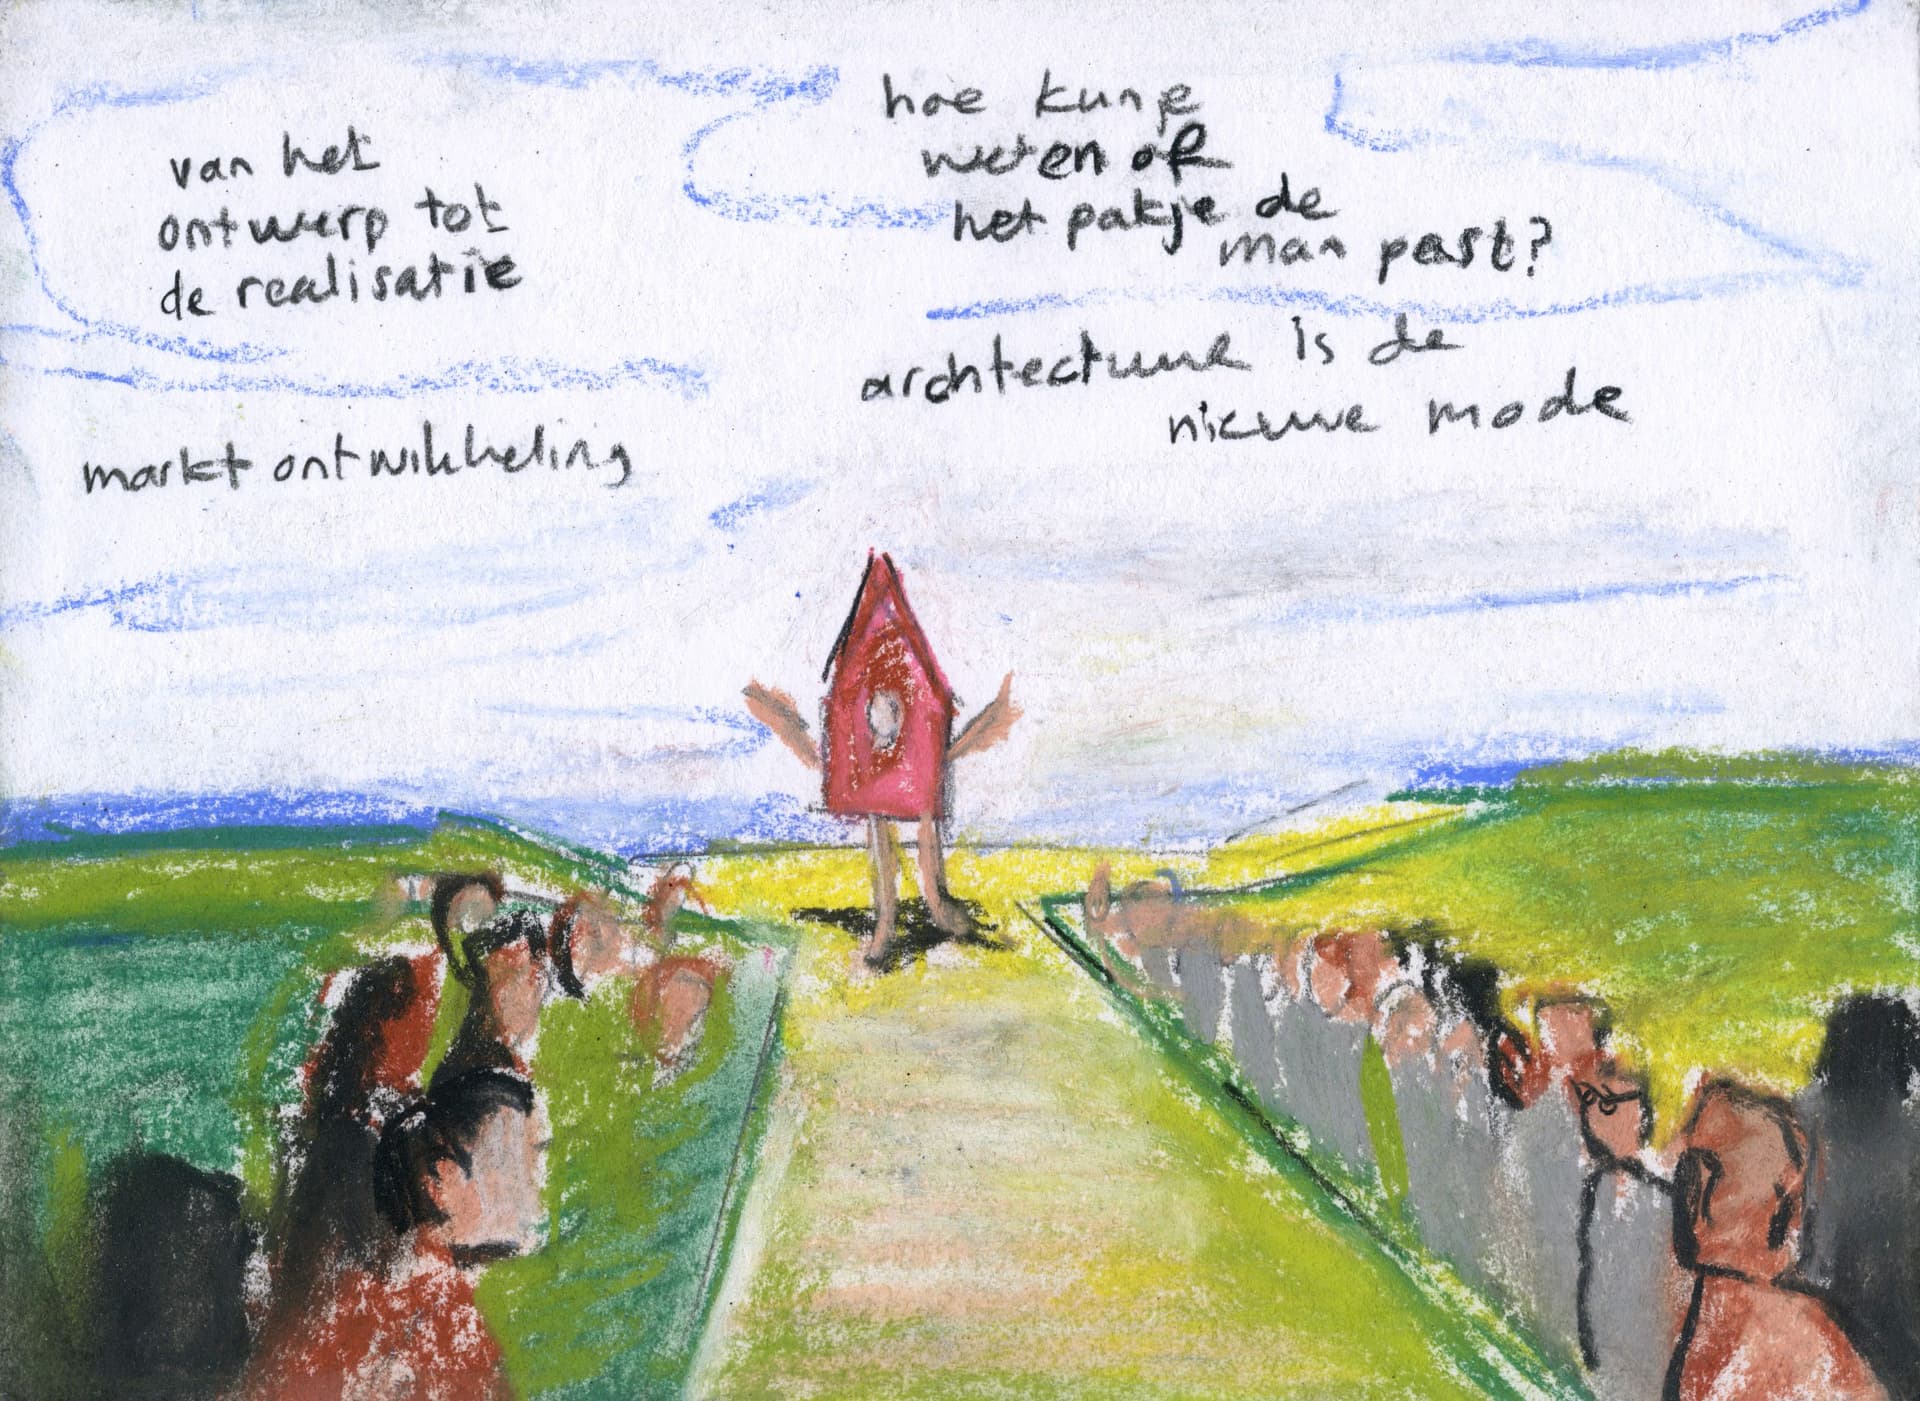 van het
ontwerp tot
de realisatie
markt ontwikkeling
hoe kun je
weten of
het pakje de
man past?
architectuur is de
nieuwe mode